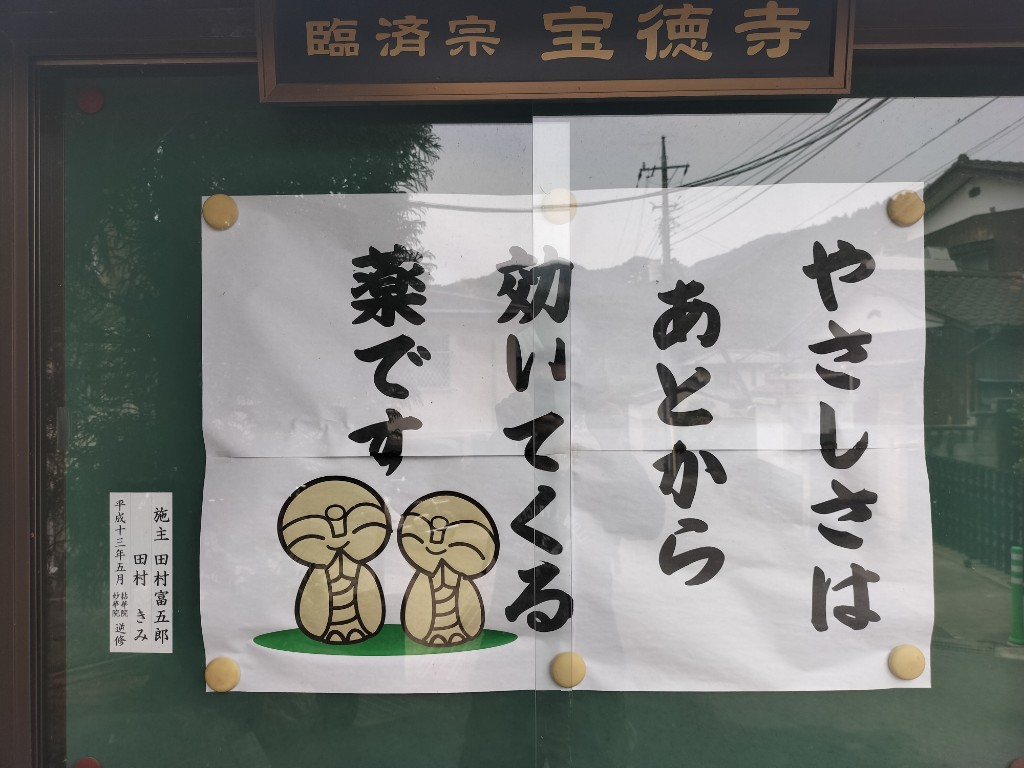 臨済宗 宝徳寺
やさしさは
あとから
効いてくる
薬です
施主 田村富五郎
田村 きみ
平成十三年五月 拈華院 妙華院 逆修